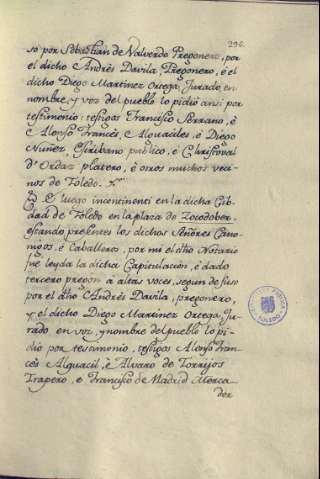 296.
so por Sebastian de Valverde Pregonero, por
el dicho Andrés Davila, Pregonero, è el
dicho Diego Martinez Ortega, Jurado, en
nombre, y voz del pueblo lo pidió ansi por
testimonio: testigos Francisco Serrano, è
Alonso Francés Alguaciles, è Diego
Nuñez Escribano publico, è Christoval
d'Ordaz platero, è otros muchos veci-
nos de Toledo.
E luego incontinenti en la dicha Cib-
dad de Toledo en la plaza de Zocodober,
estando presentes los dichos Señores Cano-
nigos, è Caballeros, por mi el dho Notario
fue leyda la dicha Capitulacion, è dado
tercero pregon à altas voces, segun de suso
por el dho Andrés Davila, pregonero,
y el dicho Diego Martinez Ortega, Ju-
rado en voz, y nombre del pueblo lo pi-
dió por testimonio, testigos Alonso Fran-
cés Alguacil, è Alvaro de Torrijos
Trapero, e Francisco de Madrid Merca-
der
TOLEDO